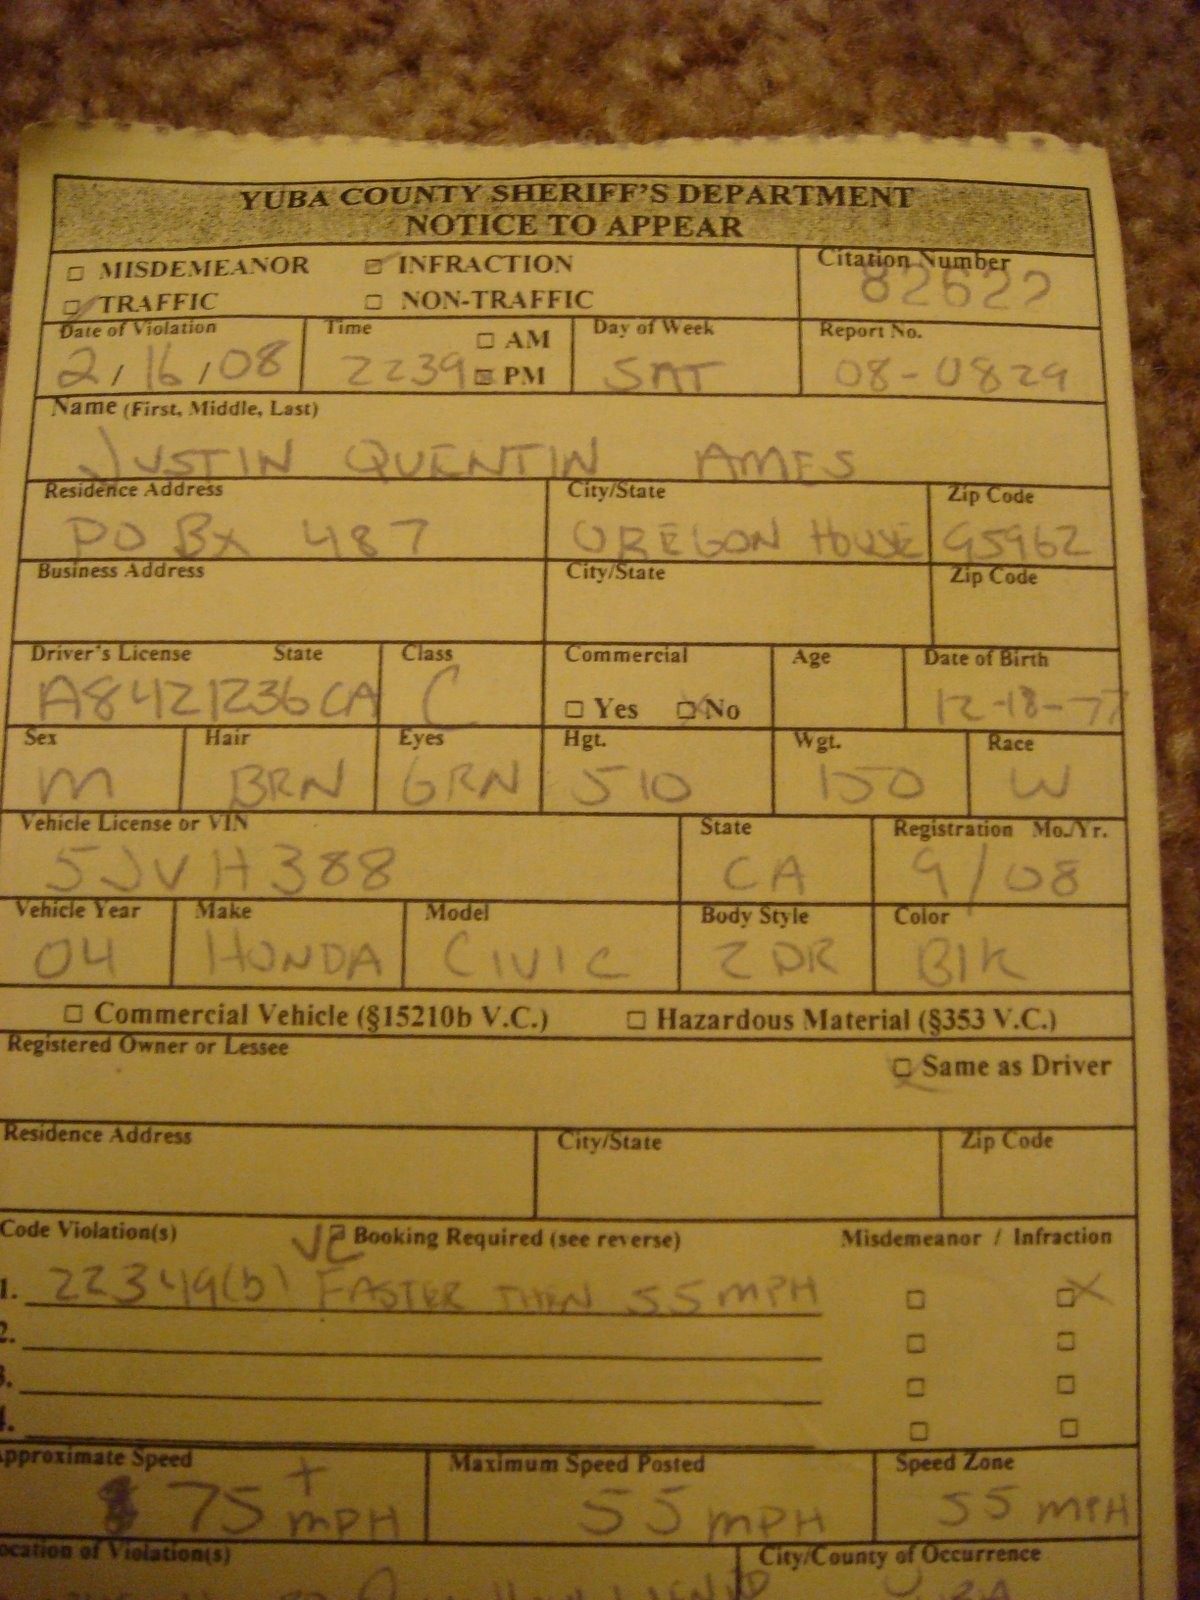 YUBA COUNTY SHERIFF'S DEPARTMENT
NOTICE TO APPEAR
MISDEMEANOR INFRACTION Citation Number
TRAFFIC NON-TRAFFIC
Date of Violation Time AM Day of Week Report No.
2/16/08 2239 PM SAT 08-0829
Name (First, Middle, Last)
JUSTIN QUENTIN AMES
Residence Address City/State Zip Code
PO BX 487 OREGON HOUSE 95962
Business Address City/State Zip Code
Driver's License State Class Commercial Age Date of Birth
A8421236 CA C Yes No 12-18-77
Sex Hair Eyes Hgt. Wgt. Race
M BRN GRN 510 150 W
Vehicle License or VIN State Registration Mo./Yr.
5JVH388 CA 9/08
Vehicle Year Make Model Body Style Color
04 HONDA CIVIC 2DR BlK
Commercial Vehicle (§15210b V.C.) Hazardous Material (§353 V.C.)
Registered Owner or Lessee
Same as Driver
Residence Address City/State Zip Code
Code Violation(s) Booking Required (see reverse) Misdemeanor / Infraction
1. 22349(b) FASTER THEN 55 MPH
2.
3.
4.
Approximate Speed Maximum Speed Posted Speed Zone
75+ MPH 55 MPH 55 MPH
Location of Violation(s) City/County of Occurrence
YUBA